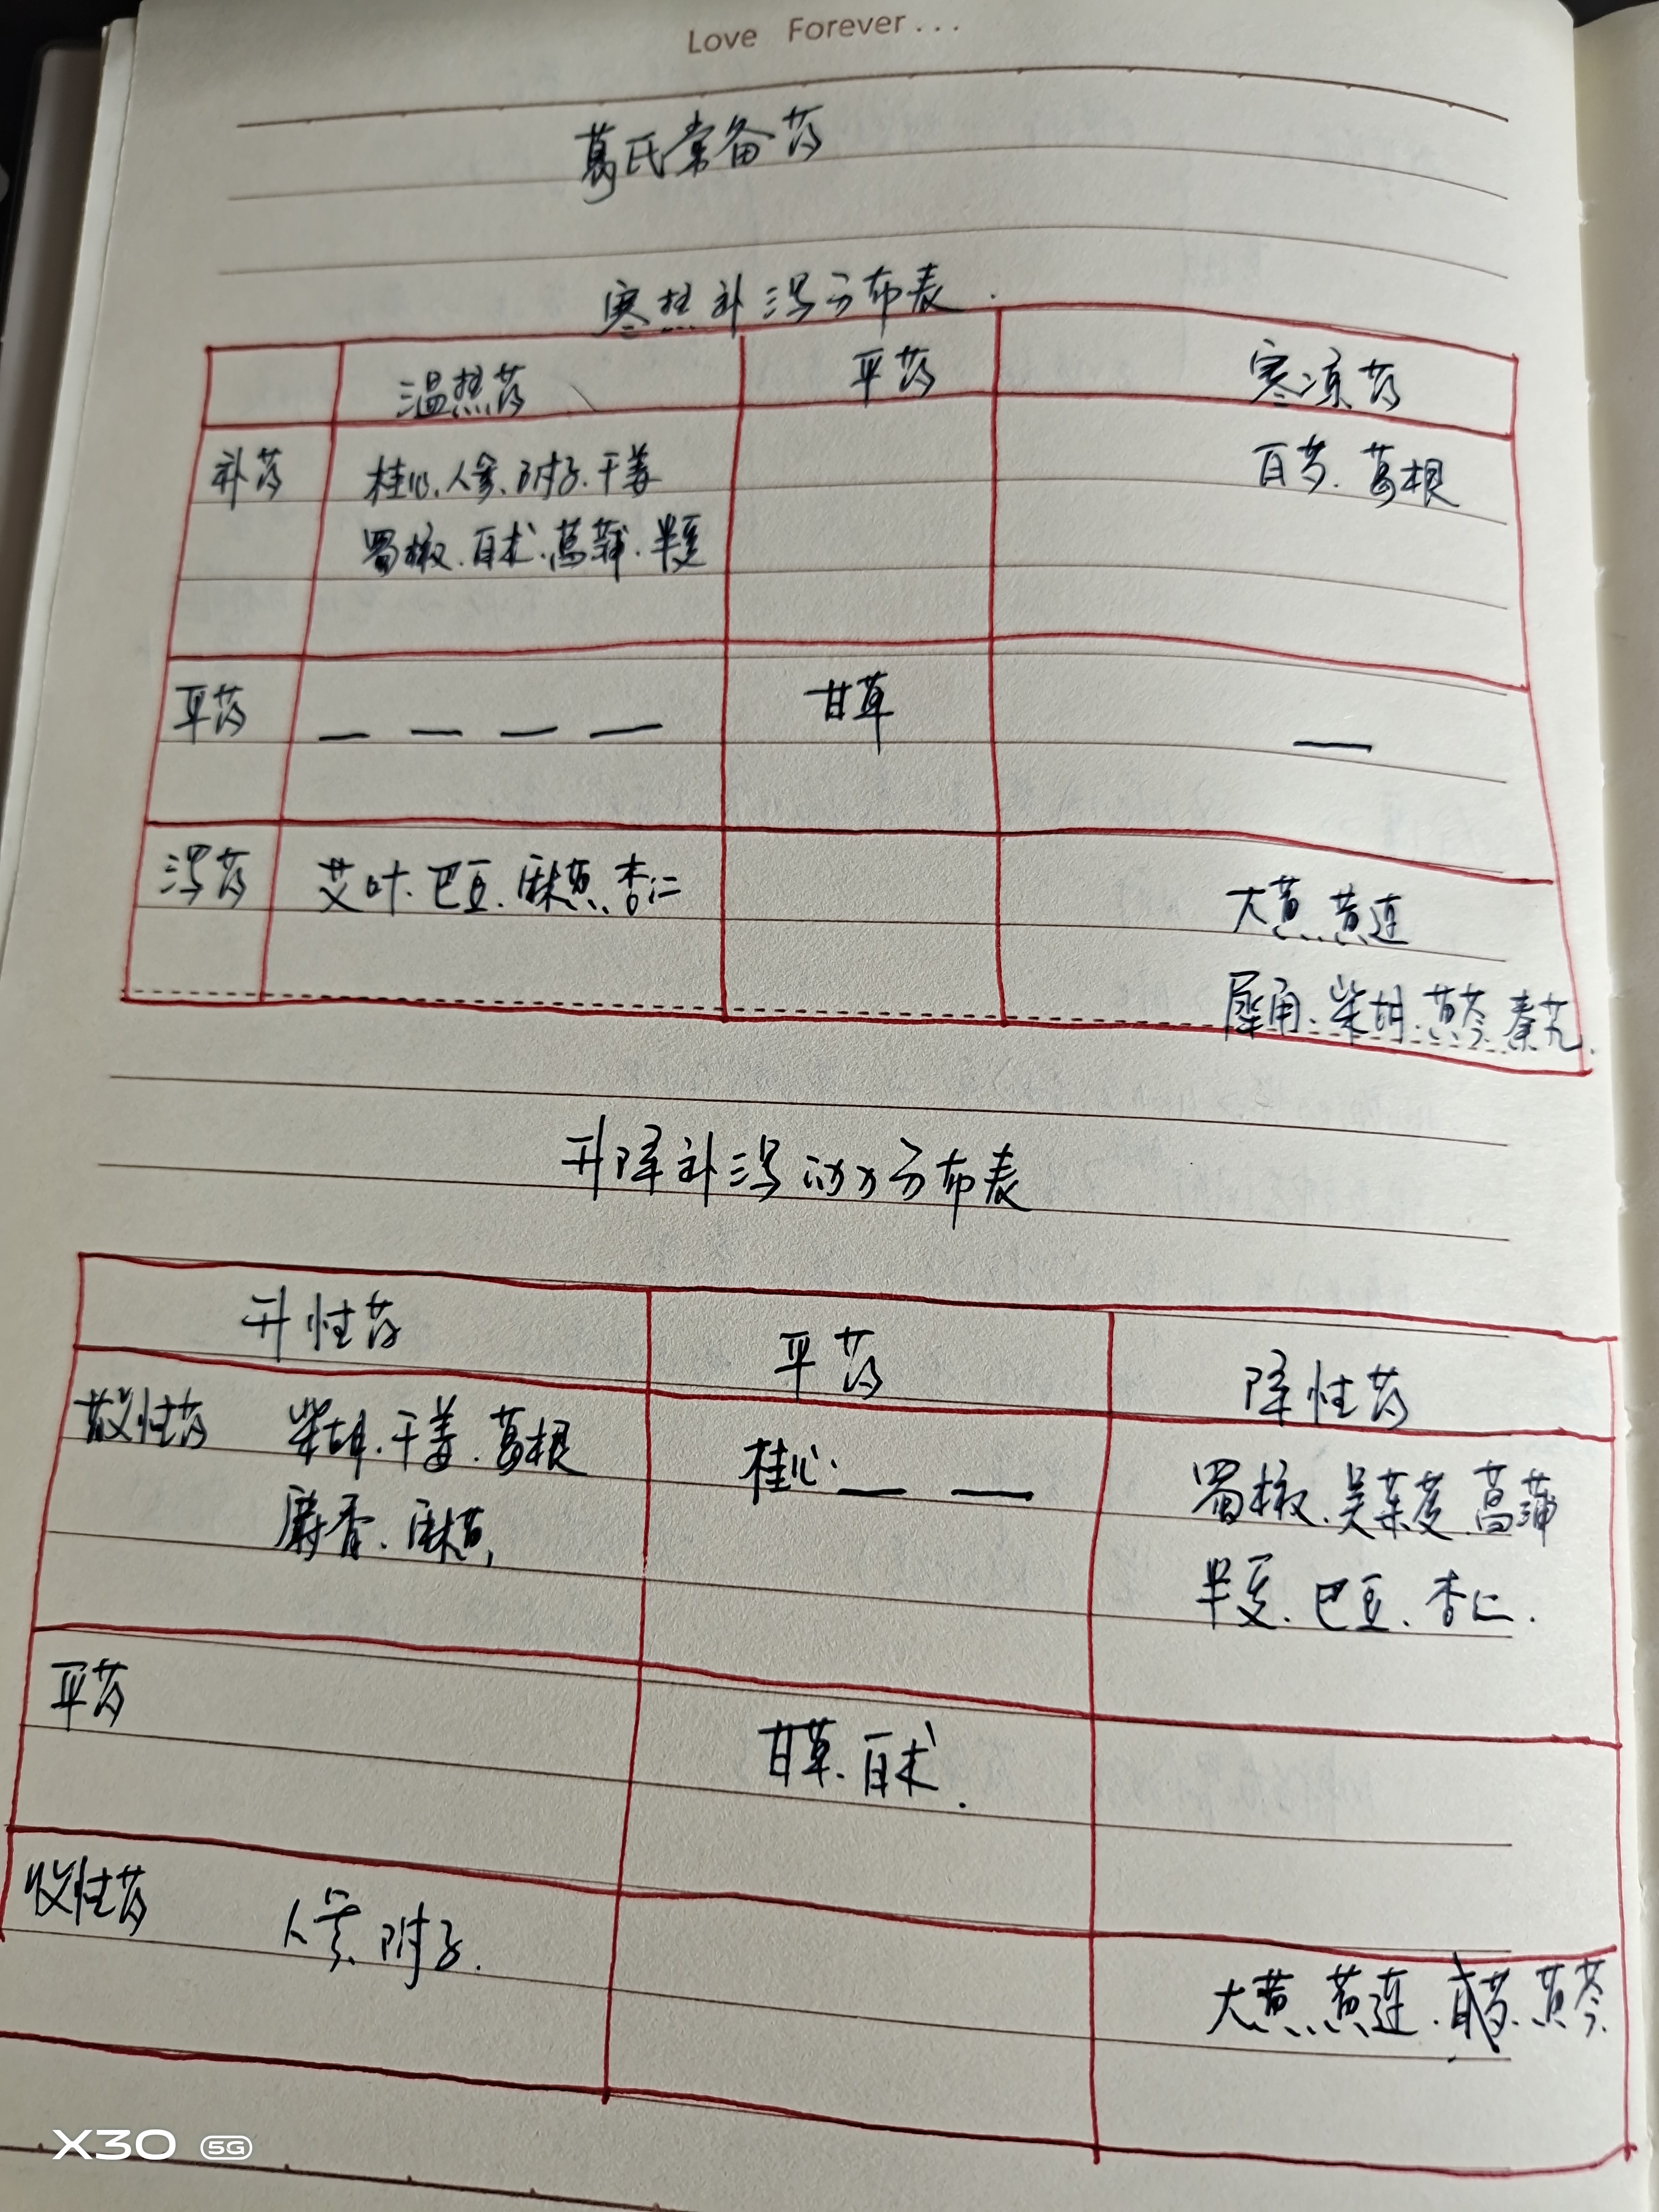 Love Forever...
葛氏常备药
寒热补泻分布表.
温热药 平药 寒凉药
补药 桂心、人参、附子、干姜 白芍、葛根
蜀椒、白术、菖蒲、半夏
平药 — — — — 甘草 —
泻药 艾叶、巴豆、麻黄、杏仁 大黄、黄连
犀角、柴胡、黄芩、秦艽.
升降补泻动力分布表
升性药 平药 降性药
散性药 柴胡、干姜、葛根 桂心、— — 蜀椒、吴茱萸、菖蒲
麝香、麻黄, 半夏、巴豆、杏仁.
平药 甘草、白术.
收性药 人参、附子. 大黄、黄连、白芍、黄芩.
X30 5G